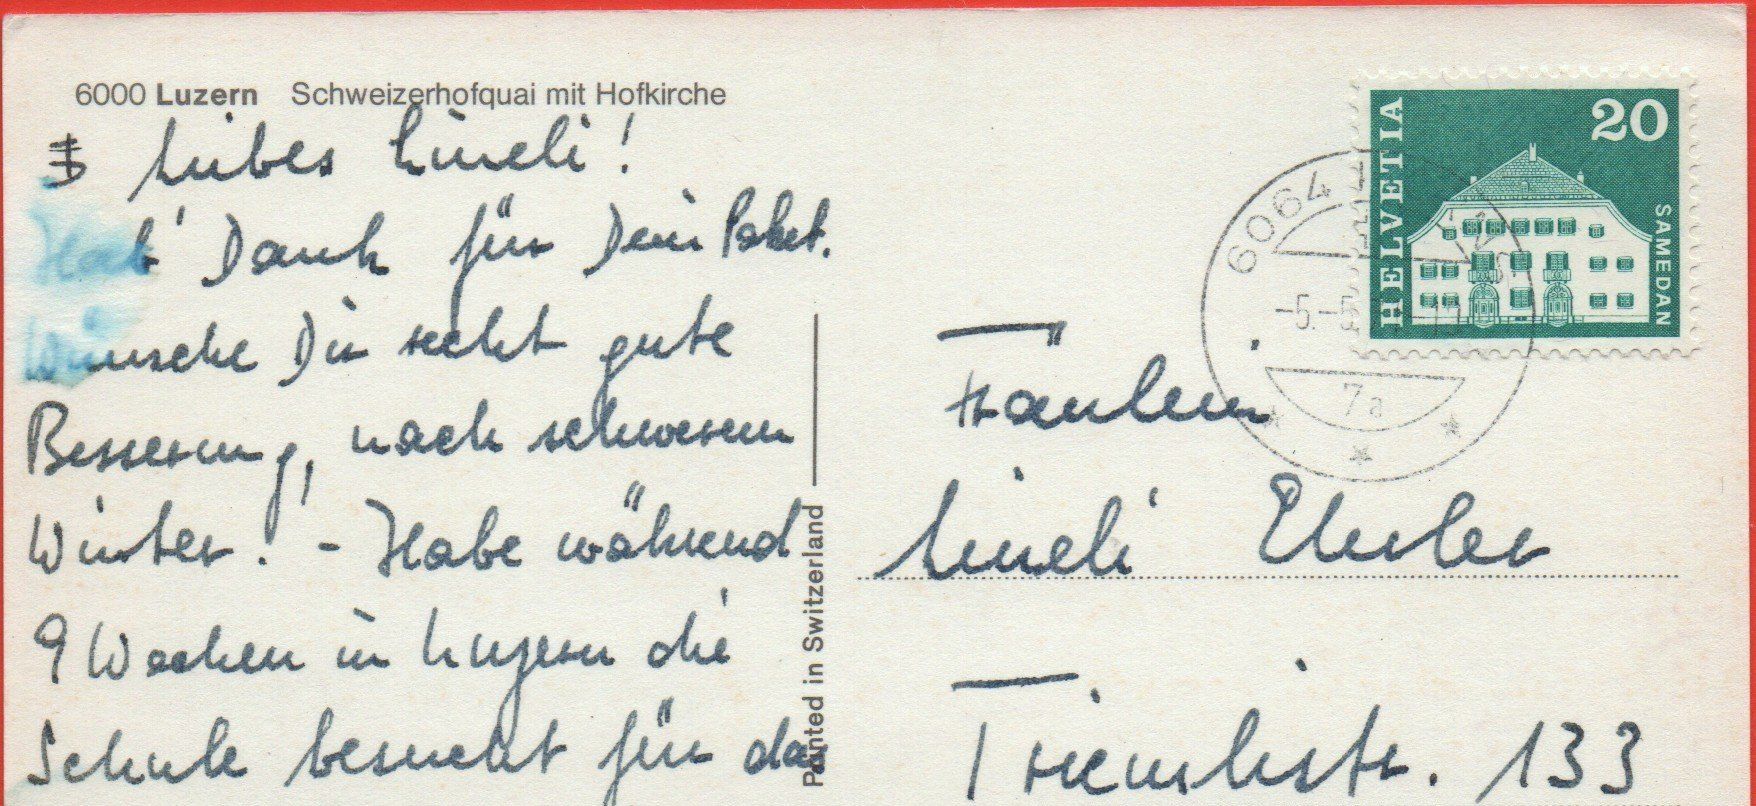 6000 Luzern Schweizerhofquai mit Hofkirche
Liebes Lineli!
Hab' Dank für Dein Paket.
Wünsche Dir recht gute
Besserung, nach schwerem
Winter! - Habe während
9 Wochen in Luzern die
Schule besucht für das
Printed in Switzerland
HELVETIA
20
SAMEDAN
6064
-5.-5
7a
Fräulein
Lineli
Triemlistr. 133